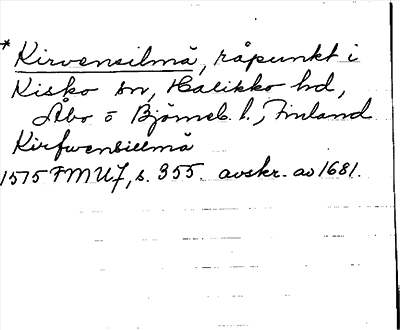 *Kirvensilmä, råpunkt i
Kisko sn, Halikko hd,
Åbo o Björneb. l., Finland
Kirfwensillmä
1575 FMU7, s. 355. avskr. av 1681.